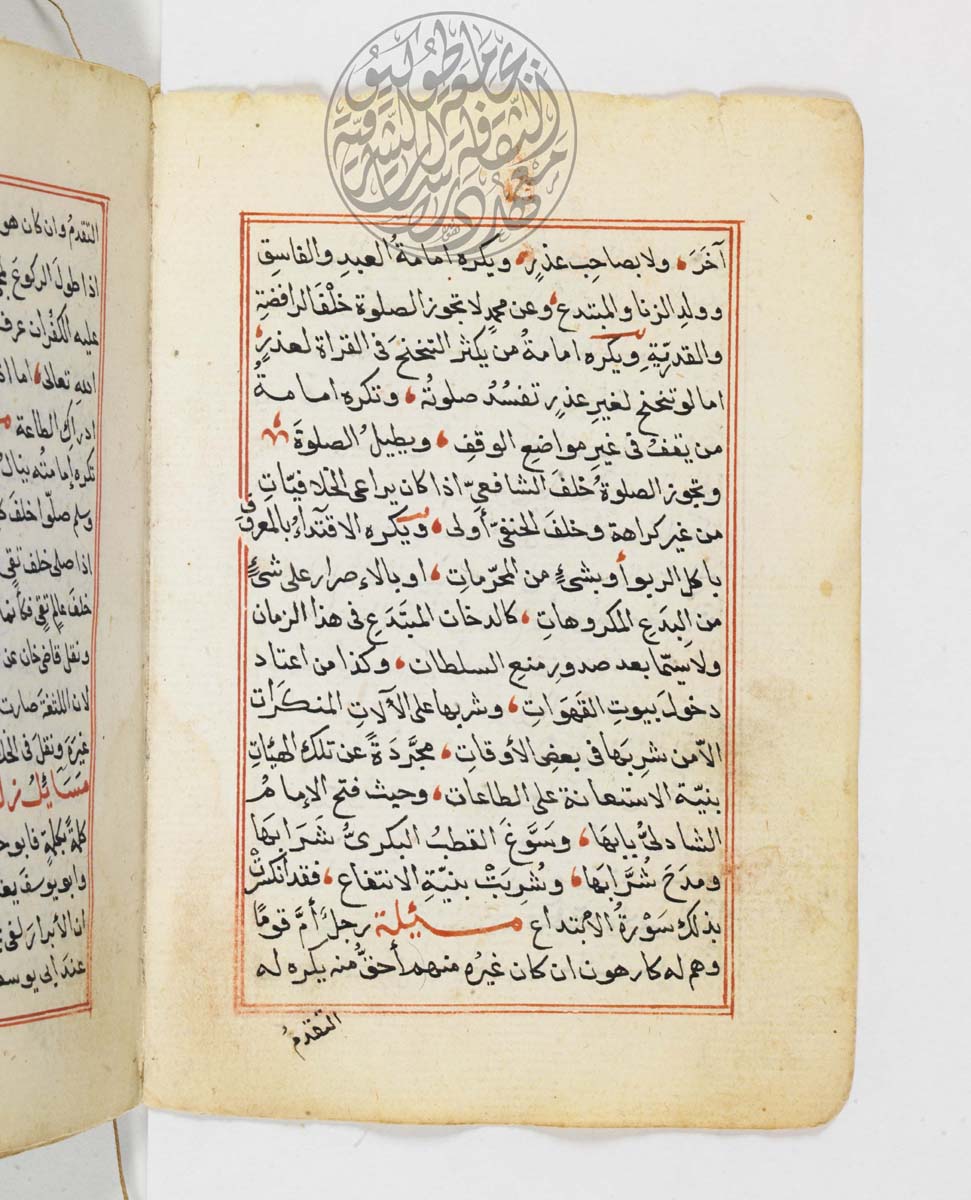 آخَرَ ولا بصاحِبِ عذرٍ ويكره امامةُ العبدِ والفاسقِ
وولدِ الزنا والمبتدع وعن محمدٍ لا تجوز الصلوة خلْفَ الرافضةِ
والقدريّةِ ويكره امامةُ من يكثر التنحنح فى القراة لعذرٍ
اما لو تنحنح لغيرِ عذرٍ تفسُدُ صلوتُهُ وتكره امامةُ
من يقفُ فى غيرِ مواضعِ الوقفِ ويطيلُ الصلوةَ
وتجوز الصلوةُ خلفَ الشافعىِّ اذا كان يراعى الخلافيّاتِ
من غير كراهة وخلفَ الحنفىّ أولى ويكره الاقتداءُ بالمعروفِ
باكل الربوا أو بشئٍ من المحرّماتِ او بالاصرار على شئٍ
من البِدَعِ المكروهاتِ كالدخان المبتَدَعِ فى هذا الزمان
ولا سيّما بعد صدورِ منعِ السلطان وكذا من اعتاد
دخولَ بيوتِ القهَوَاتِ وشربها على الآلاتِ المنكرَات
الّا من شرِبَها فى بعضِ الأوقاتِ مجرَّدَةً عن تلك الهيْاتِ
بنيّة الاستعانة على الطاعات وحيث فتح الإمامُ
الشاذلىُّ بابها وسَوَّغَ القطبُ البكرىُّ شَرَابها
ومدَحَ شُرَّابَها وشُرِبَتْ بنيّةِ الانتفاع فقد انكسرتْ
بذلك سَوْرةُ الابتداع مسئلة رجلٌ أمَّ قومًا
وهم له كارهون ان كان غيره منهم أحقُّ منه يكره له
التقدمُ
التقدمُ وان كان هو
اذا طولَ الركوعَ
عليه الكفرَ ان عرف
اللهِ تعالى اما اذا
ادراك الطاعة
تكره إمامته ينال
وسلم صلّوا خلفَ
اذا صلى خلف تقى
خلفَ عالمٍ تقىٍ فكأنما
ونقل قاضى خان عن
لان اللثغة صارت
غيرَه ونقلَ فى
مَسَائِلُ
كلمةً بكلمةٍ فابو
وابو يوسف
ان الأبرارَ لفى
عند ابى يوسف
معهد الثقافة والدراسات الشرقية
جامعة طوكيو